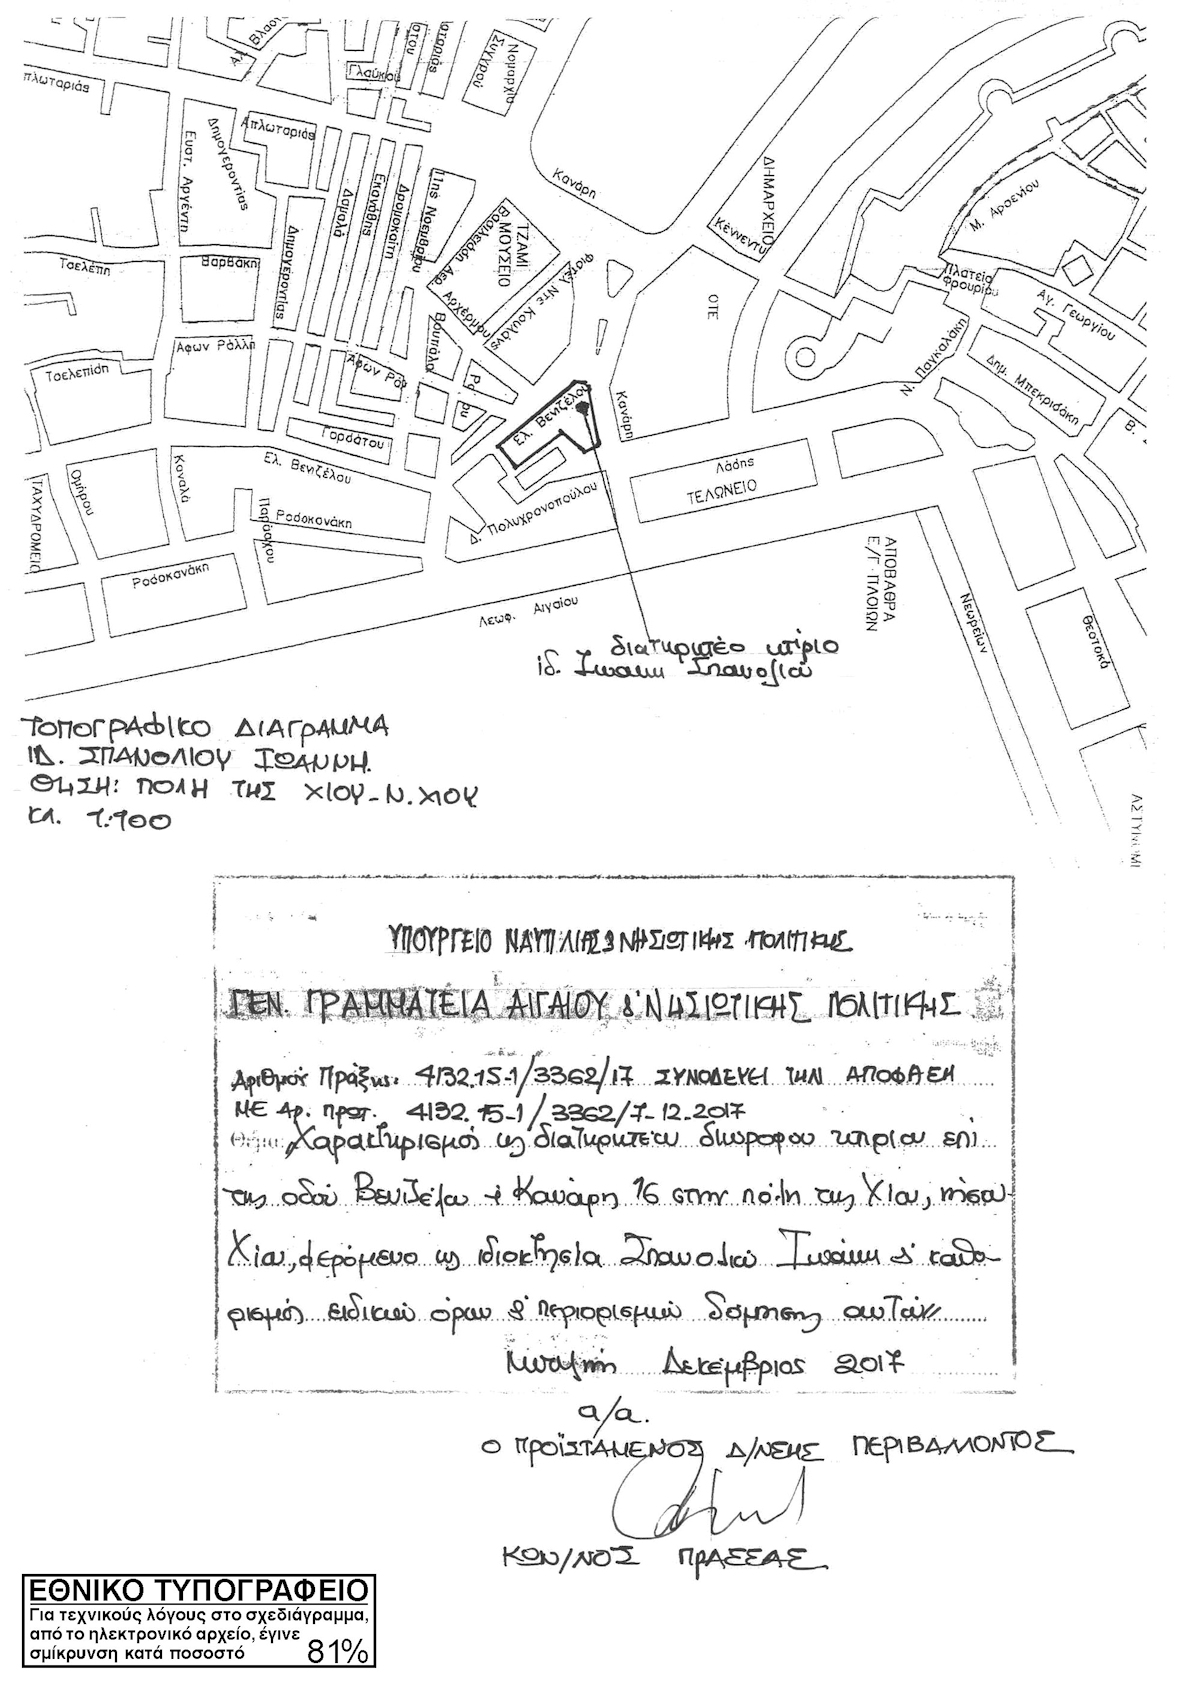 Αλ. Βλασ
Γλαύκου
Συγγρού
Νομαρχία
πλωταριάς
Απλωταριάς
Ευστ. Αργέντη
Δημογεροντίας
Κανάρη
ΔΗΜΑΡΧΕΙΟ
Κέννεντυ
Μ. Αρσενίου
Δαμαλά
Εκανάθης
Δρομοκαΐτη
11ης Νοεμβρίου
Βασιλειάδη Αερ.
ΤΖΑΜΙ
ΜΟΥΣΕΙΟ
Φιστέλ Ντε Κουλάνς
Αρχέρμου
Τσελέπη
Βαρβάκη
Δημογεροντίας
Πλατεία
Φρουρίου
Αγ. Γεωργίου
ΟΤΕ
Αφων Ράλλη
Βουπάλου
Αφων Ρά
Τσελεπίδη
Ν. Παγκαλάκη
Δημ. Μπεκριδάκη
Β.
Ελ. Βενιζέλου
Κανάρη
Γορδάτου
Ελ. Βενιζέλου
Λάδης
ΤΕΛΩΝΕΙΟ
ΤΑΧΥΔΡΟΜΕΙΟ
Ομήρου
Κοραλά
Παράσχου
Ροδοκανάκη
Δ. Πολυχρονοπούλου
Ροδοκανάκη
ΑΠΟΒΑΘΡΑ
Ε/Γ ΠΛΟΙΩΝ
Λεωφ. Αιγαίου
Νεωρείων
Θεοτοκά
διατηρητέο κτίριο
ιδ. Ιωάννη Σπανολιού
ΑΣΤΥΝΟΜΙ
ΤΟΠΟΓΡΑΦΙΚΟ ΔΙΑΓΡΑΜΜΑ
ΙΔ. ΣΠΑΝΟΛΙΟΥ ΙΩΑΝΝΗ.
ΘΗΣΗ: ΠΟΛΗ ΤΗΣ ΧΙΟΥ-Ν.ΧΙΟΥ
ΚΛ. 1:100
ΥΠΟΥΡΓΕΙΟ ΝΑΥΤΙΛΙΑΣ & ΝΗΣΙΩΤΙΚΗΣ ΠΟΛΙΤΙΚΗΣ
ΓΕΝ. ΓΡΑΜΜΑΤΕΙΑ ΑΙΓΑΙΟΥ & ΝΗΣΙΩΤΙΚΗΣ ΠΟΛΙΤΙΚΗΣ
Αριθμός Πράξης: 4132.15-1/3362/17 ΣΥΝΟΔΕΥΕΙ ΤΗΝ ΑΠΟΦΑΣΗ
ΜΕ Αρ. πρωτ. 4132.15-1/3362/7-12-2017
Θέμα: Χαρακτηρισμός ως διατηρητέου διώροφου κτιρίου επί
της οδού Βενιζέλου & Κανάρη 16 στην πόλη της Χίου, νήσου
Χίου, φερόμενο ως ιδιοκτησία Σπανολιού Ιωάννη & καθο-
ρισμός ειδικών όρων & περιορισμών δόμησης αυτών
Μυτιλήνη Δεκέμβριος 2017
α/α.
Ο ΠΡΟΪΣΤΑΜΕΝΟΣ Δ/ΝΣΗΣ ΠΕΡΙΒΑΛΛΟΝΤΟΣ
ΚΩΝ/ΝΟΣ ΠΡΑΣΣΑΣ
ΕΘΝΙΚΟ ΤΥΠΟΓΡΑΦΕΙΟ
Για τεχνικούς λόγους στο σχεδιάγραμμα,
από το ηλεκτρονικό αρχείο, έγινε
σμίκρυνση κατά ποσοστό 81%